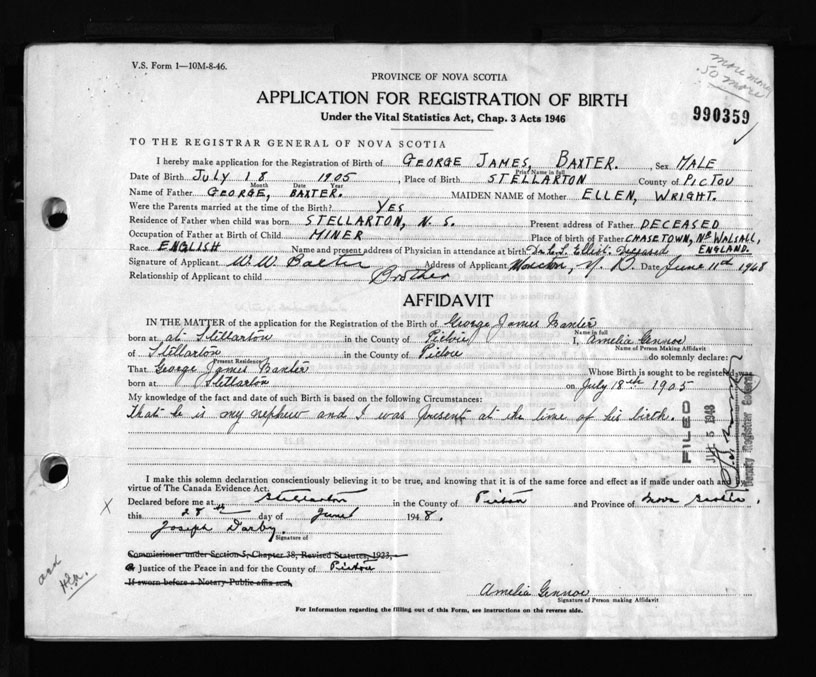 V.S. Form 1—10M-8-46.
more more
50 more
PROVINCE OF NOVA SCOTIA
APPLICATION FOR REGISTRATION OF BIRTH
990359
Under the Vital Statistics Act, Chap. 3 Acts 1946
TO THE REGISTRAR GENERAL OF NOVA SCOTIA
I hereby make application for the Registration of Birth of GEORGE JAMES, BAXTER. Sex MALE
Print Name in full
Date of Birth JULY 18 1905, Place of Birth STELLARTON County of PICTOU
Month Date Year
Name of Father GEORGE, BAXTER. MAIDEN NAME of Mother ELLEN, WRIGHT.
Were the Parents married at the time of the Birth? YES
Residence of Father when child was born STELLARTON, N. S. Present address of Father DECEASED
Occupation of Father at Birth of Child MINER Place of birth of Father CHASETOWN, NR WALSALL, ENGLAND.
Race ENGLISH Name and present address of Physician in attendance at birth Deceased
Signature of Applicant W. W. Baxter Address of Applicant Moncton, N. B. Date June 11th 1948
Relationship of Applicant to child Brother
AFFIDAVIT
IN THE MATTER of the application for the Registration of the Birth of George James Baxter
Name in full
born at at Stellarton in the County of Pictou I, Amelia Gennoe
Name of Person Making Affidavit
of Stellarton in the County of Pictou do solemnly declare:
Present Residence
That George James Baxter Whose Birth is sought to be registered was
born at Stellarton on July 18th 1905
My knowledge of the fact and date of such Birth is based on the following Circumstances:
That he is my nephew and I was present at the time of his birth.
FILED
JUL 5 1948
Deputy Registrar General
I make this solemn declaration conscientiously believing it to be true, and knowing that it is of the same force and effect as if made under oath and
virtue of The Canada Evidence Act.
X Declared before me at Stellarton in the County of Pictou and Province of Nova Scotia.
this 28th day of June 1948.
Joseph Darby
Signature of
Commissioner under Section 5, Chapter 38, Revised Statutes, 1923,
a Justice of the Peace in and for the County of Pictou
If sworn before a Notary Public affix seal
Amelia Gennoe
Signature of Person making Affidavit
For Information regarding the filling out of this Form, see instructions on the reverse side.